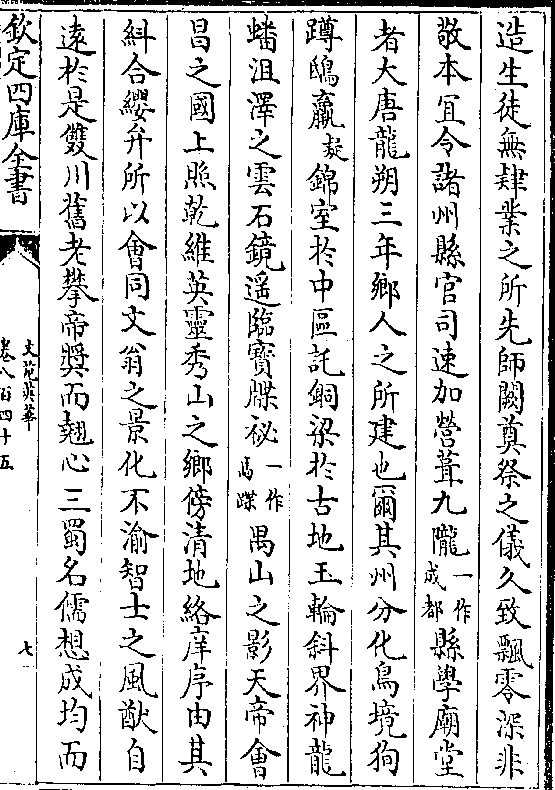 造生徒無肄業之所先師闕奠祭之儀久致飄零深非
敬本宜令諸州縣官司速加營葺九隴一作成都縣學廟堂
者大唐龍朔三年鄉人之所建也爾其州分化鳥境狥
蹲鴟䕨疑錦室於中區託銅梁於古地玉輪斜界神龍
蟠沮澤之雲石鏡遥臨寳牒祕一作馮蝶禺山之影天帝會
昌之國上照乾維英靈秀山之鄉傍清地絡庠序由其
糾合纓弁所以會同文翁之景化不渝智士之風猷自
遠於是雙川舊老攀帝奬而翹心三蜀名儒想成均而
欽定四庫全書
文苑英華
卷八百四十五
七